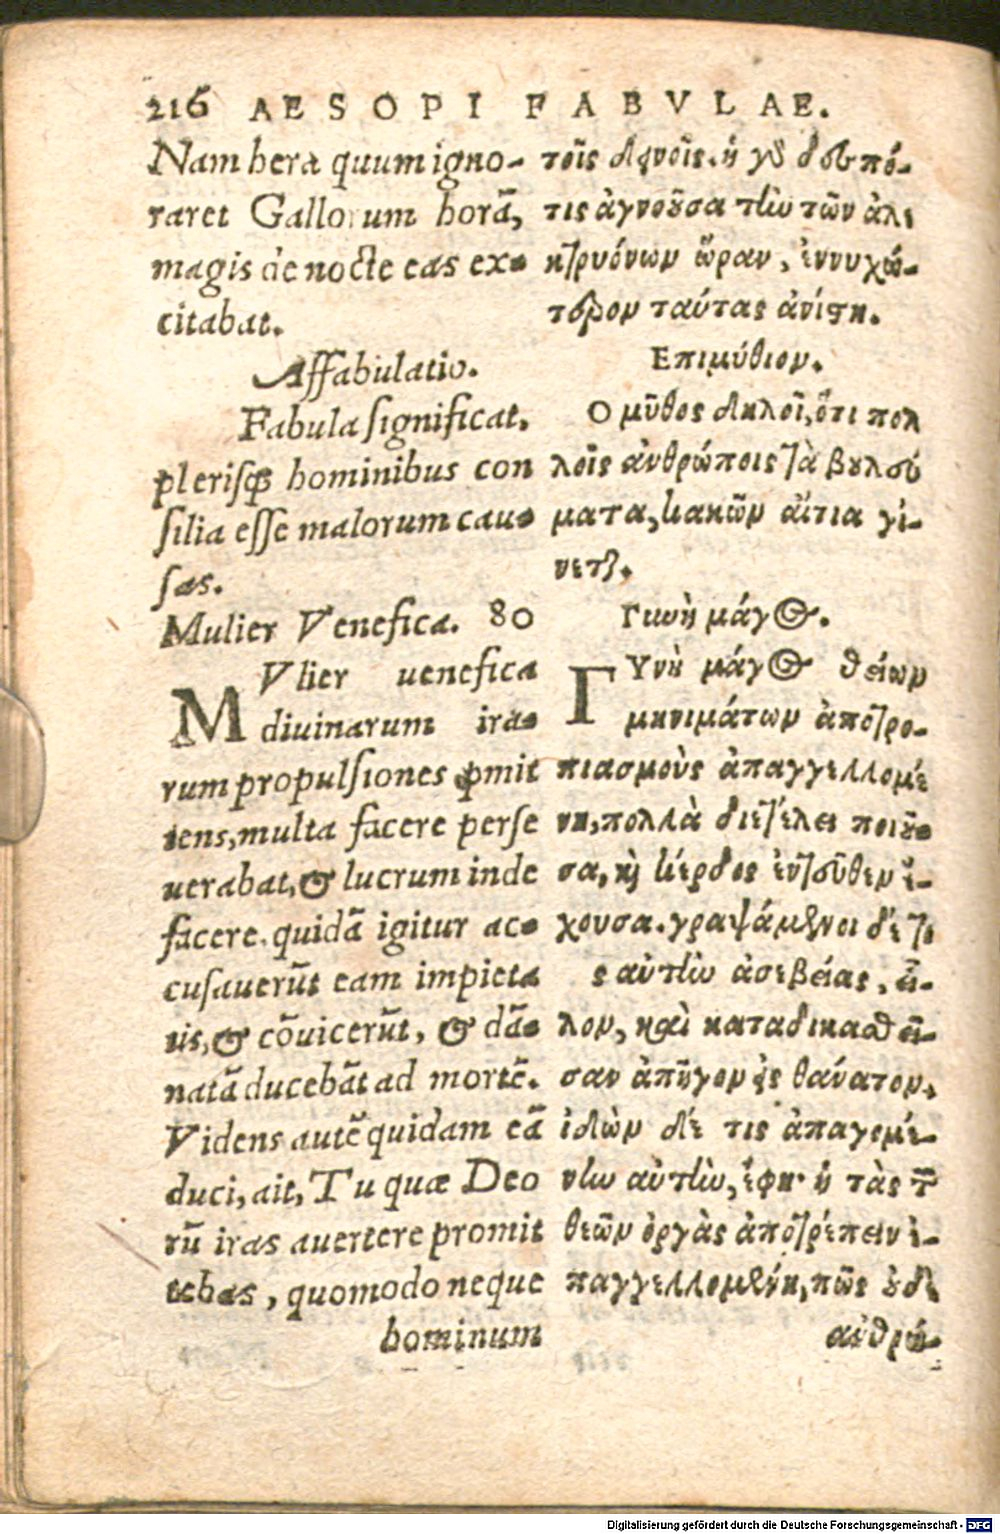 216 AESOPI FABVLAE.
Nam hera quum igno-
raret Gallorum horã,
magis de nocte eas ex-
citabat.
Affabulatio.
Fabula significat,
plerisq; hominibus con
silia esse malorum cau-
sas.
Mulier Venefica. 80
MVlier uenefica
diuinarum ira-
rum propulsiones ꝓmit
tens, multa facere perse
uerabat, & lucrum inde
facere. quidã igitur ac-
cusauerũt eam impieta
tis, & cõuicerũt, & dã-
natã ducebãt ad mortẽ.
Videns autẽ quidam eã
duci, ait, Tu quæ Deo
rũ iras auertere promit
tebas, quomodo neque
hominum
τοῖς δεινοῖς. ἡ γὸ δεσπό-
τις ἀγνοῦσα τὴν τῶν ἀλε
κτρυόνων ὥραν, ἐννυχώ-
τερον ταύτας ἀνίστη.
Επιμύθιον.
Ο μῦθος δηλοῖ, ὅτι πολ
λοῖς ἀνθρώποις τὰ βουλεύ
ματα, κακῶν αἴτια γί-
νεται.
Γυνὴ μάγος.
ΓΥνὴ μάγος θείων
μηνιμάτων ἀποτρο-
πιασμοὺς ἀπαγγελλομέ
νη, πολλὰ διετέλει ποιοῦ-
σα, καὶ κέρδος ἐντεῦθεν ἔ-
χουσα. γραψάμενοι δέ τι
ς αὐτὴν ἀσεβείας, εἷ-
λον, καὶ καταδικασθεῖ-
σαν ἀπῆγον εἰς θάνατον.
ἰδὼν δέ τις ἀπαγομέ-
νην αὐτὴν, ἔφη· ἡ τὰς τ̅
θεῶν ὀργὰς ἀποτρέπειν ἐ-
παγγελλομένη, πῶς οὐδὲ
ἀνθρώ-
Digitalisierung gefördert durch die Deutsche Forschungsgemeinschaft - DFG